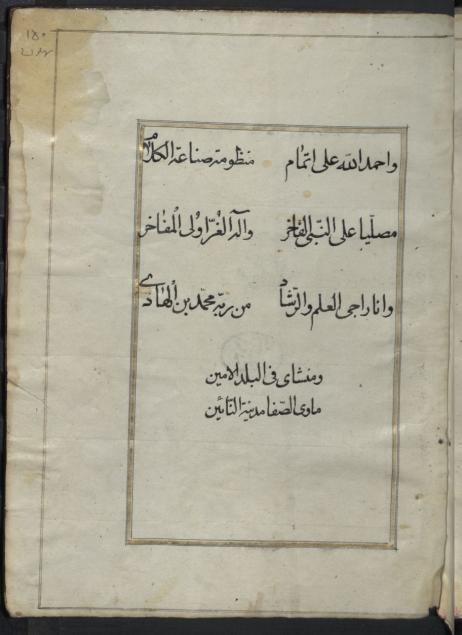 ١٨٠
واحمد الله على اتمام منظومة صناعة الكلام
مصلّيا على النّبى الفاخر وآله الغُرّ اولى المفاخر
وانا راجى العلم والرّشاد من ربّه محمّد بن الهادى
ومنشاى فى البلد الامين
ماوى الصّفا مدينة النائين